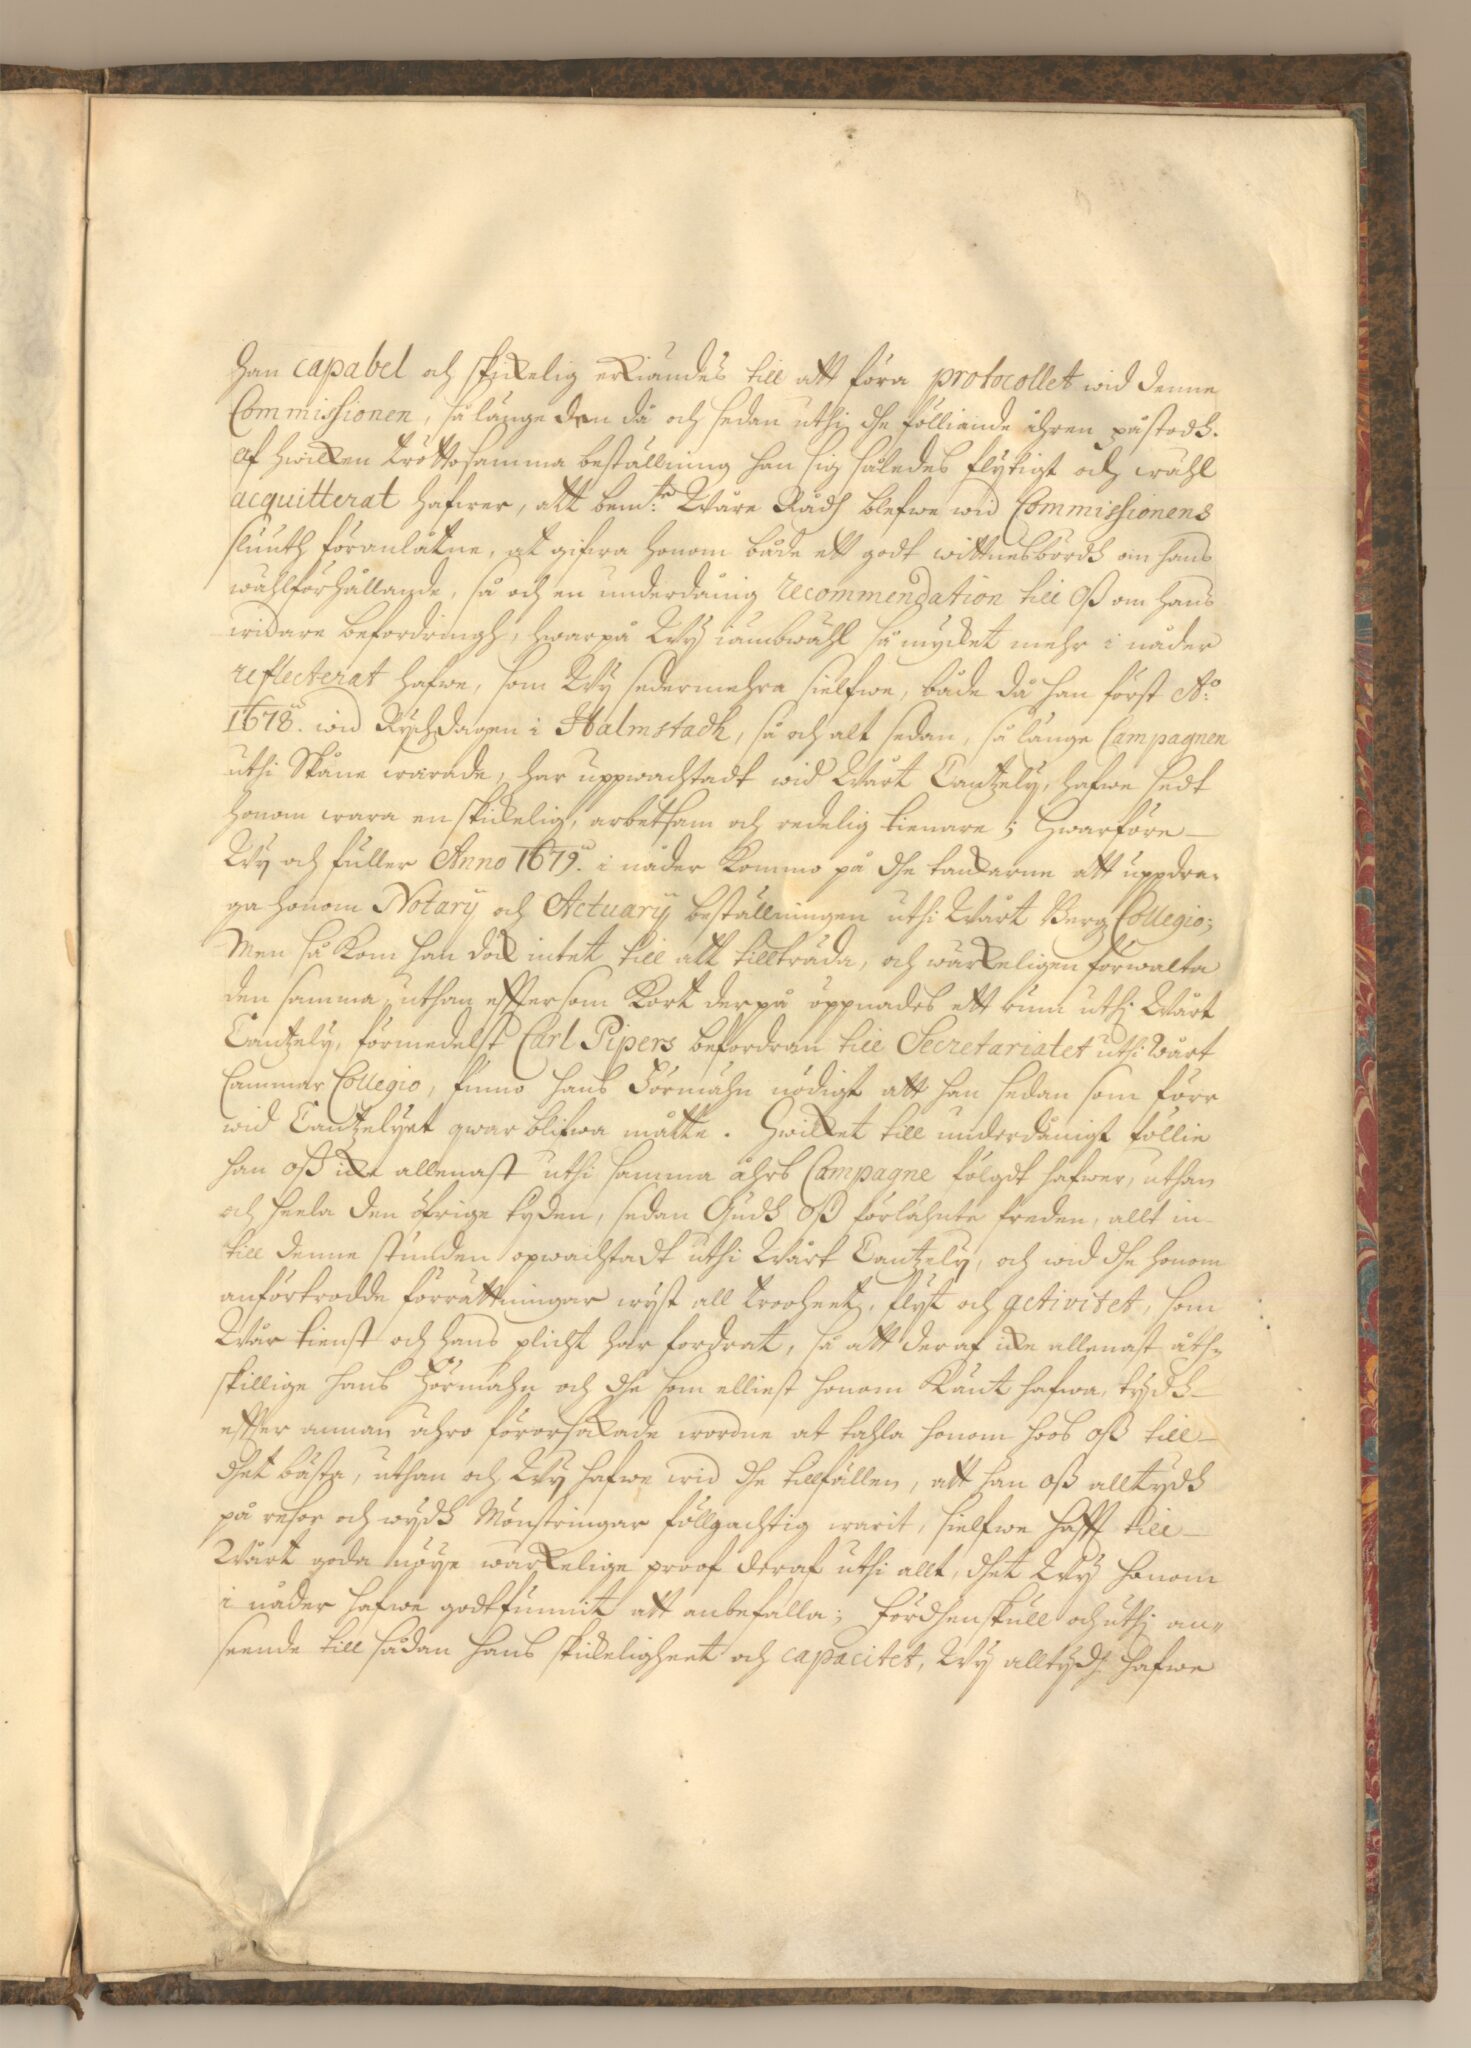 han capabel och skickelig erkiändes till att föra protocollet wid denne
Commissionen, så länge den då och sedan uthi dhe fölliande åhren påstodh.
Af hwilken tröttosamma beställning han sig således flytigt och wähl
acquitterat hafwer, att bem:te Wåre Rådh blefwe wid Commissionens
sluuth föranlåtne, at gifwa honom både ett godt wittnesbördh om hans
wählförhållande, så och en underdånig recommendation till Oß om hans
widare befordringh, hwarpå Wy iämbwähl så myckt mehr i nåder
reflecterat hafwe, som Wy sedermehra sielfwe, både då han först A:o
1678. wid Rychdagen i Halmstadh, så och alt sedan, så länge Campagnen
uthi Skåne warade, har uppwachtadt wid Wårt Cantzely, hafwe sedt
honom wara en skickelig, arbetsam och redelig tienare; Hwarföre
Wy och fuller Anno 1679. i nåder kommo på dhe tankarne att uppdra-
ga honom Notarij och Actuarij beställningen uthi Wårt Berg Collegio;
Men så kom han dock intet till att tillträda, och wärkeligen förwalta
den samma, uthan effter som kort derpå öppnades ett rum uthi Wårt
Cantzely, förmedelst Carl Pipers befordran till Secretariatet uthi Wårt
Cammar Collegio, funno hans Förmähn nödigt att han sedan som förr
wid Cantzelyet qwar blifwa måtte. Hwilket till underdånigt föllie
han Oß icke allenast uthi samma åhrs Campagne fölgdt hafwer, uthan
och heela den öfrige tyden, sedan Gudh Oß förlähnte freden, allt in-
till denne stunden opwachtadt uthi Wårt Cantzely, och wid dhe honom
anförtrodde förrättningar wyst all trooheet, flyt och activitet, som
Wår tienst och hans plicht har fordrat, så att deraf icke allenast åth-
skillige hans Förmähn och dhe som elliest honom känt hafwa, tydh
effter annan ähro förorsakade wordne at tahla honom hoos Oß till
dhet bästa, uthan och Wy hafwe wid dhe tillfällen, att han Oß alltydh
på resor och wydh Mönstringar föllgachtig warit, sielfwe hafft till
Wårt goda nöye wärkelige proof deraf uthi allt, dhet Wy honom
i nåder hafwe godtfunnit att anbefalla; Fördhenskull och uthi an-
seende till sådan hans skickeligheet och capacitet, Wy alltydh hafwe